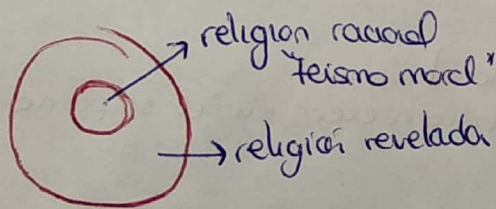 religion racional
"teismo moral"
religión revelada